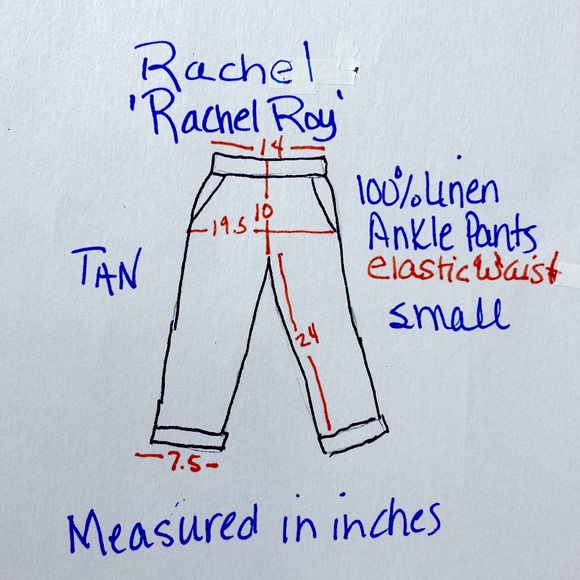 Rachel
'Rachel Roy'
14
100% Linen
Ankle Pants
elastic Waist
small
10
19.5
TAN
24
7.5
Measured in inches